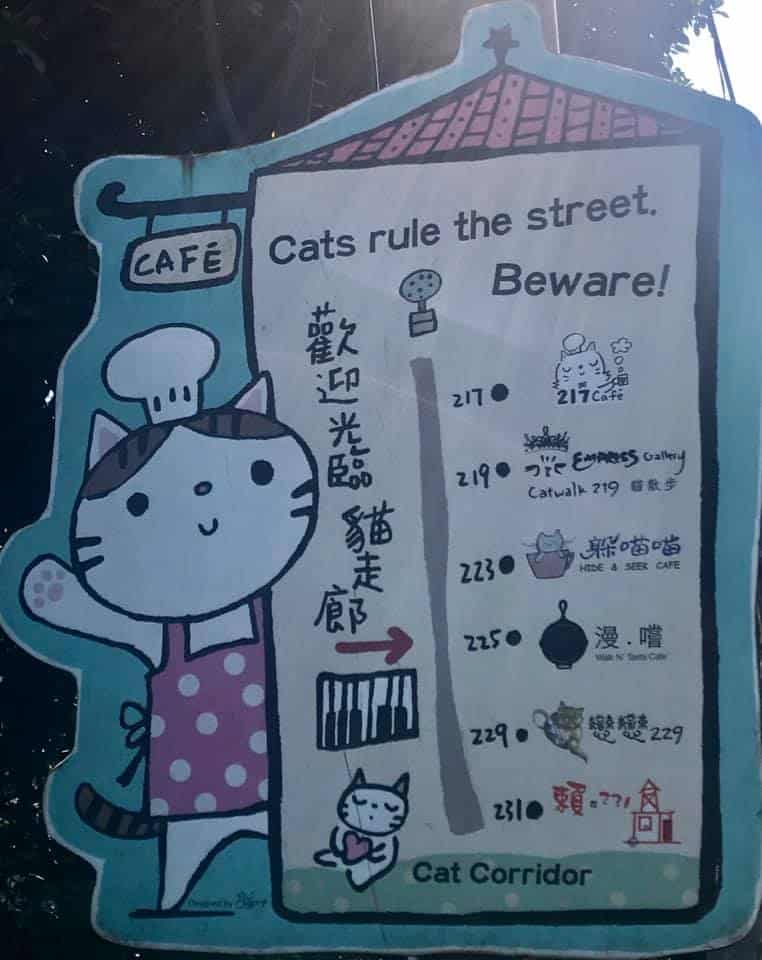 CAFÉ
Cats rule the street.
Beware!
歡迎光臨
貓走廊
217
217 Café
219
EMPRESS Gallery
Catwalk 219 貓散步
223
躲喵喵
HIDE & SEEK CAFE
225
漫．嚐
Walk N' Taste Cafe
229
戀戀229
231
賴
Cat Corridor
Designed by